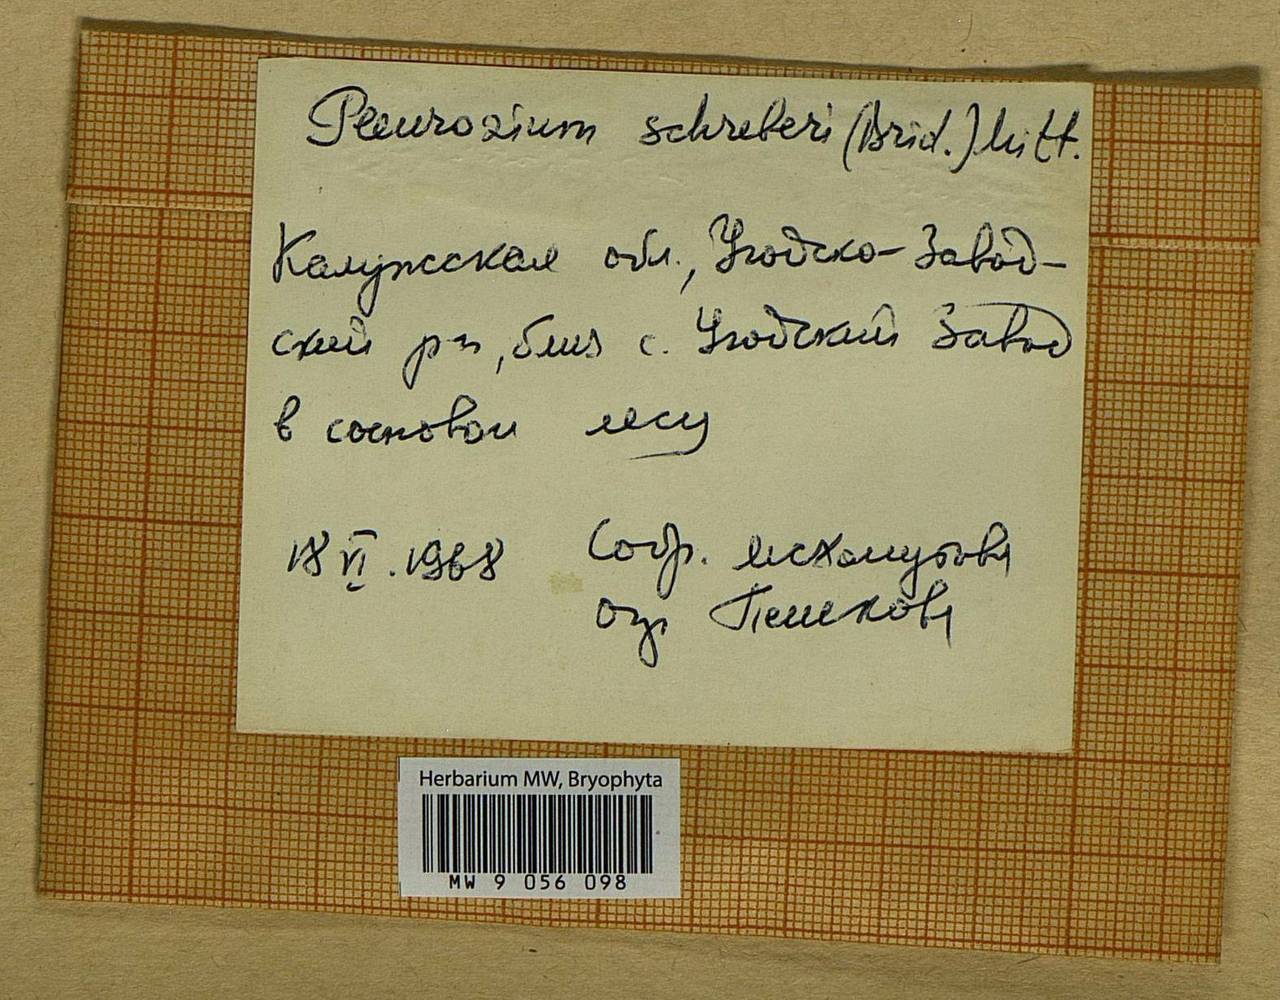 Pleurozium schreberi (Brid.) Mitt.
Калужская обл., Угодско-Завод-
ский р-н, близ с. Угодский Завод
в сосновом лесу
18 VI. 1968 Собр.
опр Пешкова
Herbarium MW, Bryophyta
MW 9 056 098